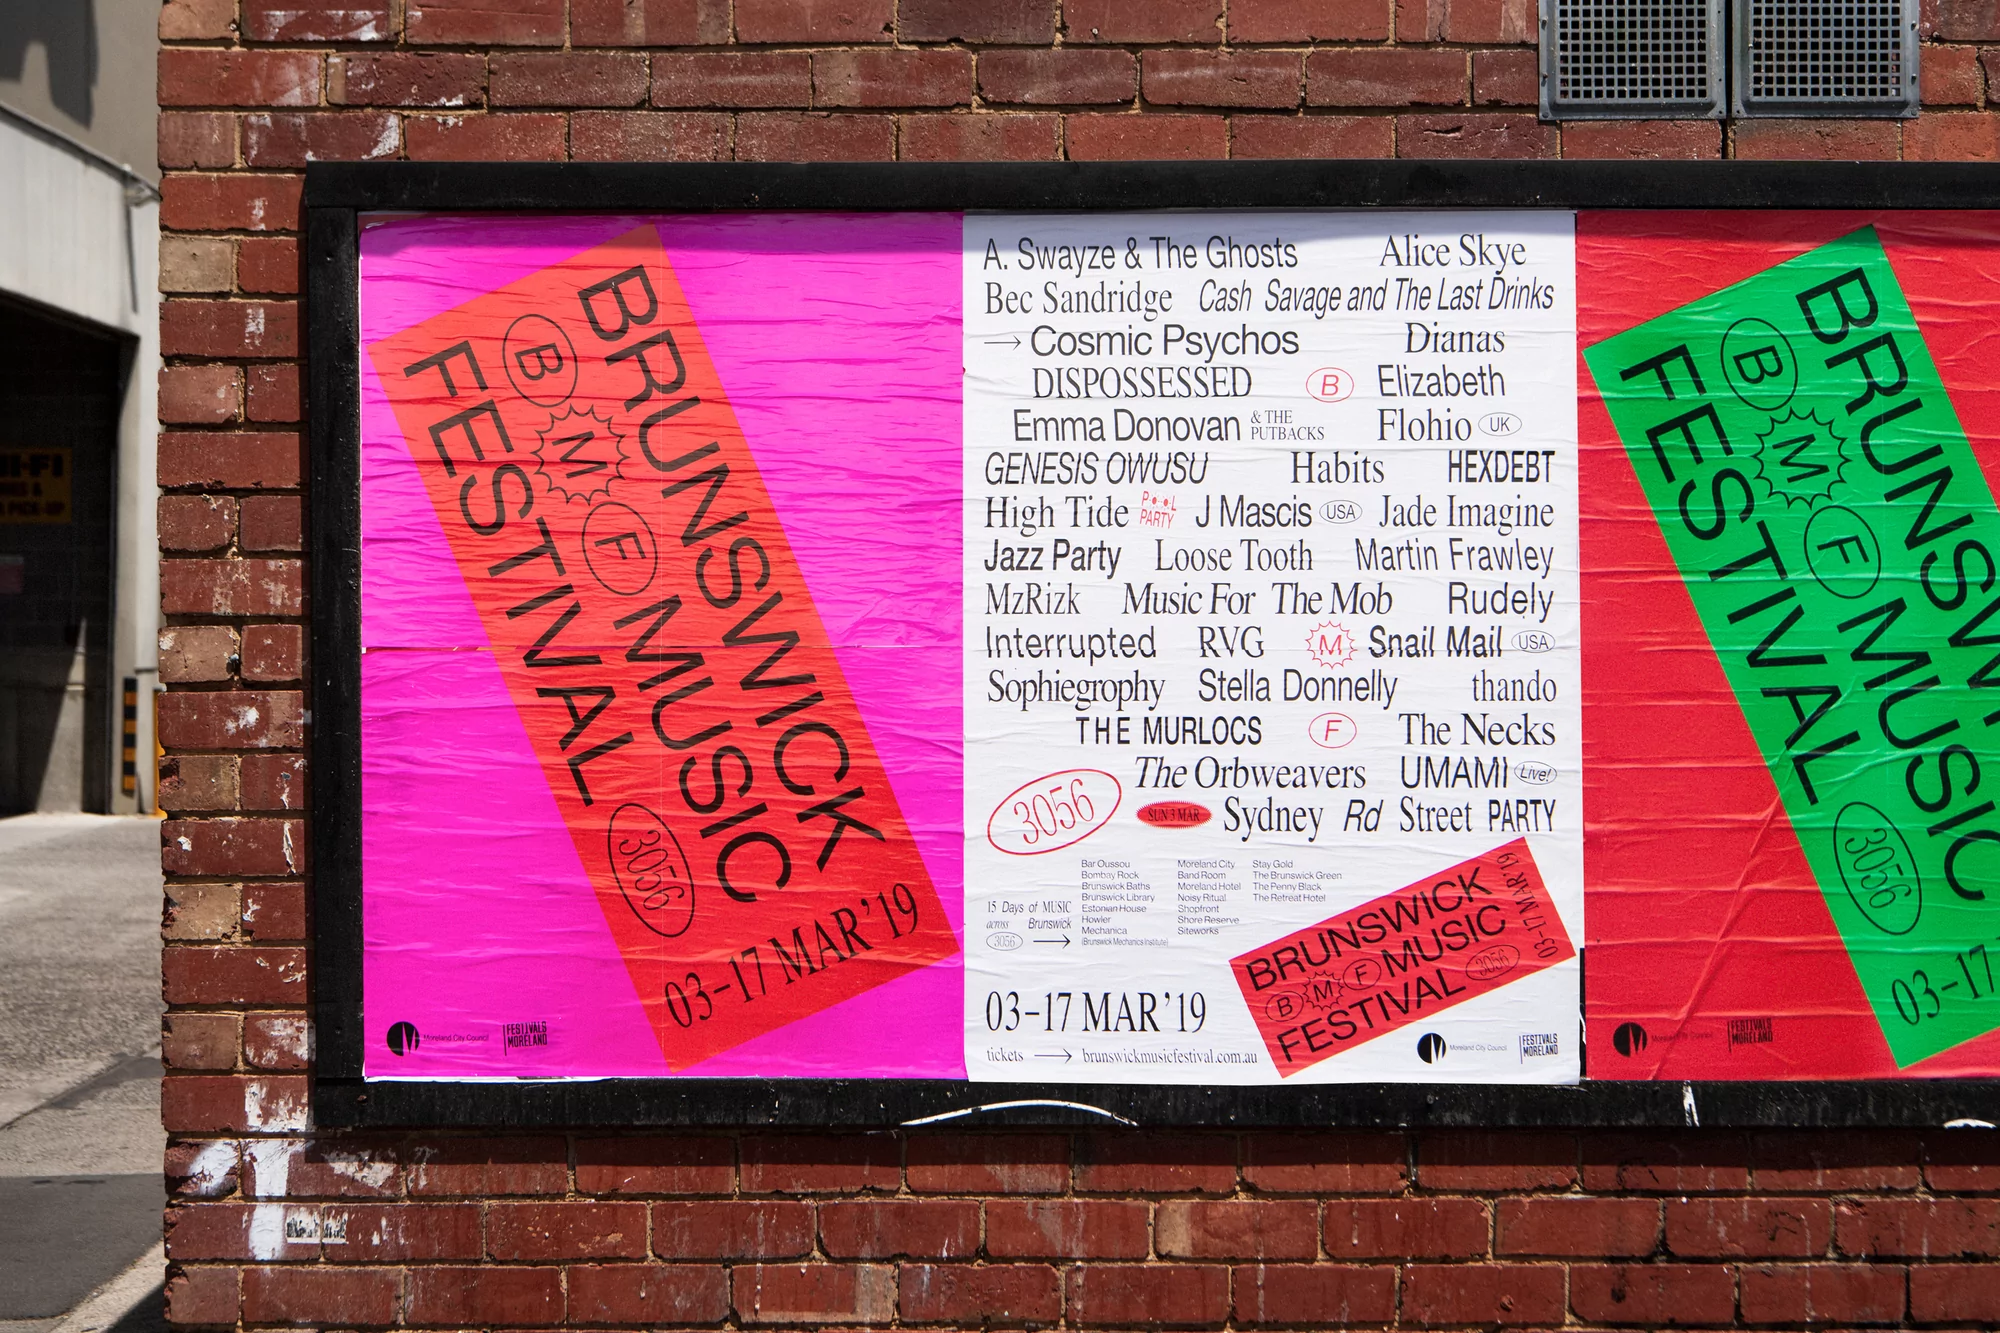 BRUNSWICK
B M F MUSIC
FESTIVAL 3056
03–17 MAR'19
Moreland City Council
FESTIVALS
MORELAND
A. Swayze & The Ghosts Alice Skye
Bec Sandridge Cash Savage and The Last Drinks
→ Cosmic Psychos Dianas
DISPOSSESSED B Elizabeth
Emma Donovan & THE PUTBACKS Flohio UK
GENESIS OWUSU Habits HEXDEBT
High Tide POOL PARTY J Mascis USA Jade Imagine
Jazz Party Loose Tooth Martin Frawley
MzRizk Music For The Mob Rudely
Interrupted RVG M Snail Mail USA
Sophiegrophy Stella Donnelly thando
THE MURLOCS F The Necks
The Orbweavers UMAMI Live!
3056 SUN 3 MAR Sydney Rd Street PARTY
15 Days of MUSIC
across Brunswick
3056 →
Bar Oussou
Bombay Rock
Brunswick Baths
Brunswick Library
Estonian House
Howler
Mechanica
(Brunswick Mechanics Institute)
Moreland City
Band Room
Moreland Hotel
Noisy Ritual
Shopfront
Shore Reserve
Siteworks
Stay Gold
The Brunswick Green
The Penny Black
The Retreat Hotel
03–17 MAR'19
tickets → brunswickmusicfestival.com.au
BRUNSWICK
B M F MUSIC
FESTIVAL 3056
03–17 MAR'19
Moreland City Council
FESTIVALS
MORELAND
BRUNSW
B M F MUSIC
FESTIVAL 3056
03–17
Moreland City Council
FESTIVALS
MORELAND